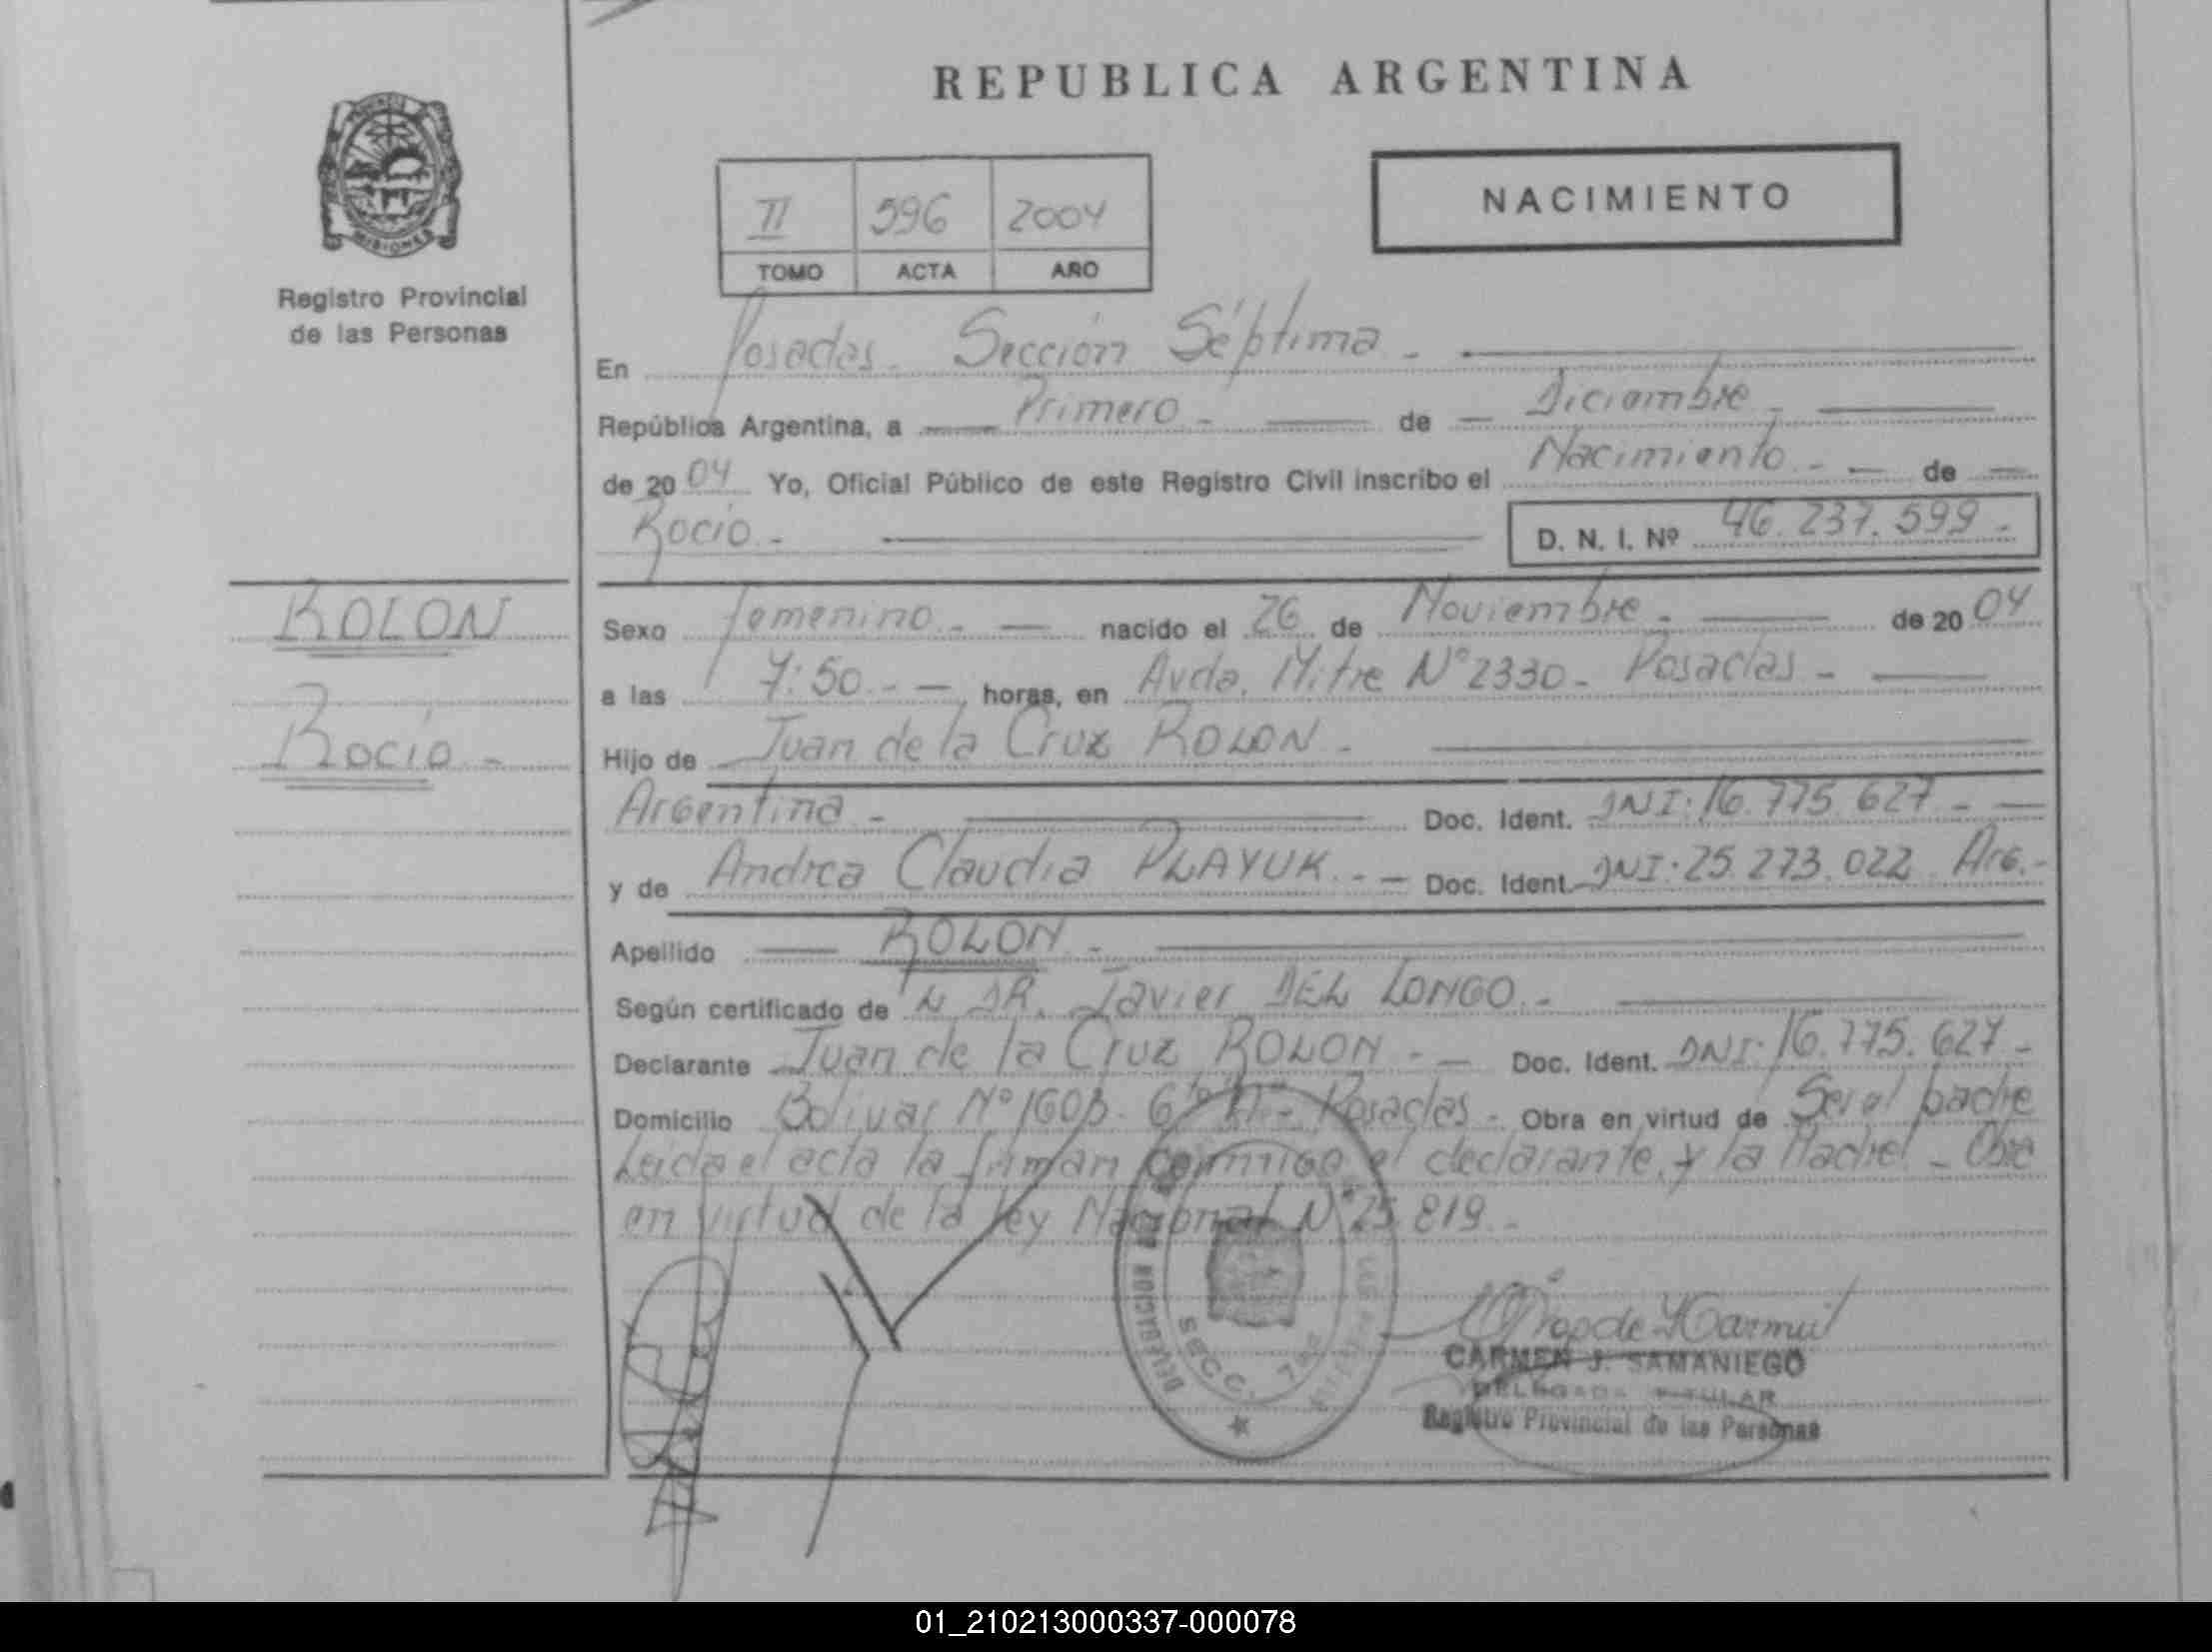 REPUBLICA ARGENTINA
NACIMIENTO
II 596 2004
TOMO ACTA AÑO
MISIONES
Registro Provincial
de las Personas
En Posadas - Sección Séptima -
República Argentina, a Primero - de Diciembre -
de 2004 Yo, Oficial Público de este Registro Civil inscribo el Nacimiento - de
Rocío - D. N. I. Nº 46.237.599 -
ROLON
Rocío -
Sexo femenino - nacido el 26 de Noviembre - de 2004
a las 7:50 - horas, en Avda. Mitre Nº 2330 - Posadas -
Hijo de Juan de la Cruz ROLON -
Argentina - Doc. Ident. DNI: 16.775.627 -
y de Andrea Claudia PLAYUK - Doc. Ident. DNI: 25.273.022 Arg. -
Apellido ROLON -
Según certificado de DR. Javier DEL LONGO -
Declarante Juan de la Cruz ROLON - Doc. Ident. DNI: 16.775.627 -
Domicilio Bolivar Nº Posadas - Obra en virtud de Ser el padre
Leida el acta la firman conmigo el declarante y la Madre - Obra
en virtud de la Ley Nacional Nº 25.819 -
SECC. 7ma
CARMEN J. SAMANIEGO
DELEGADA TITULAR
Registro Provincial de las Personas
01_210213000337-000078